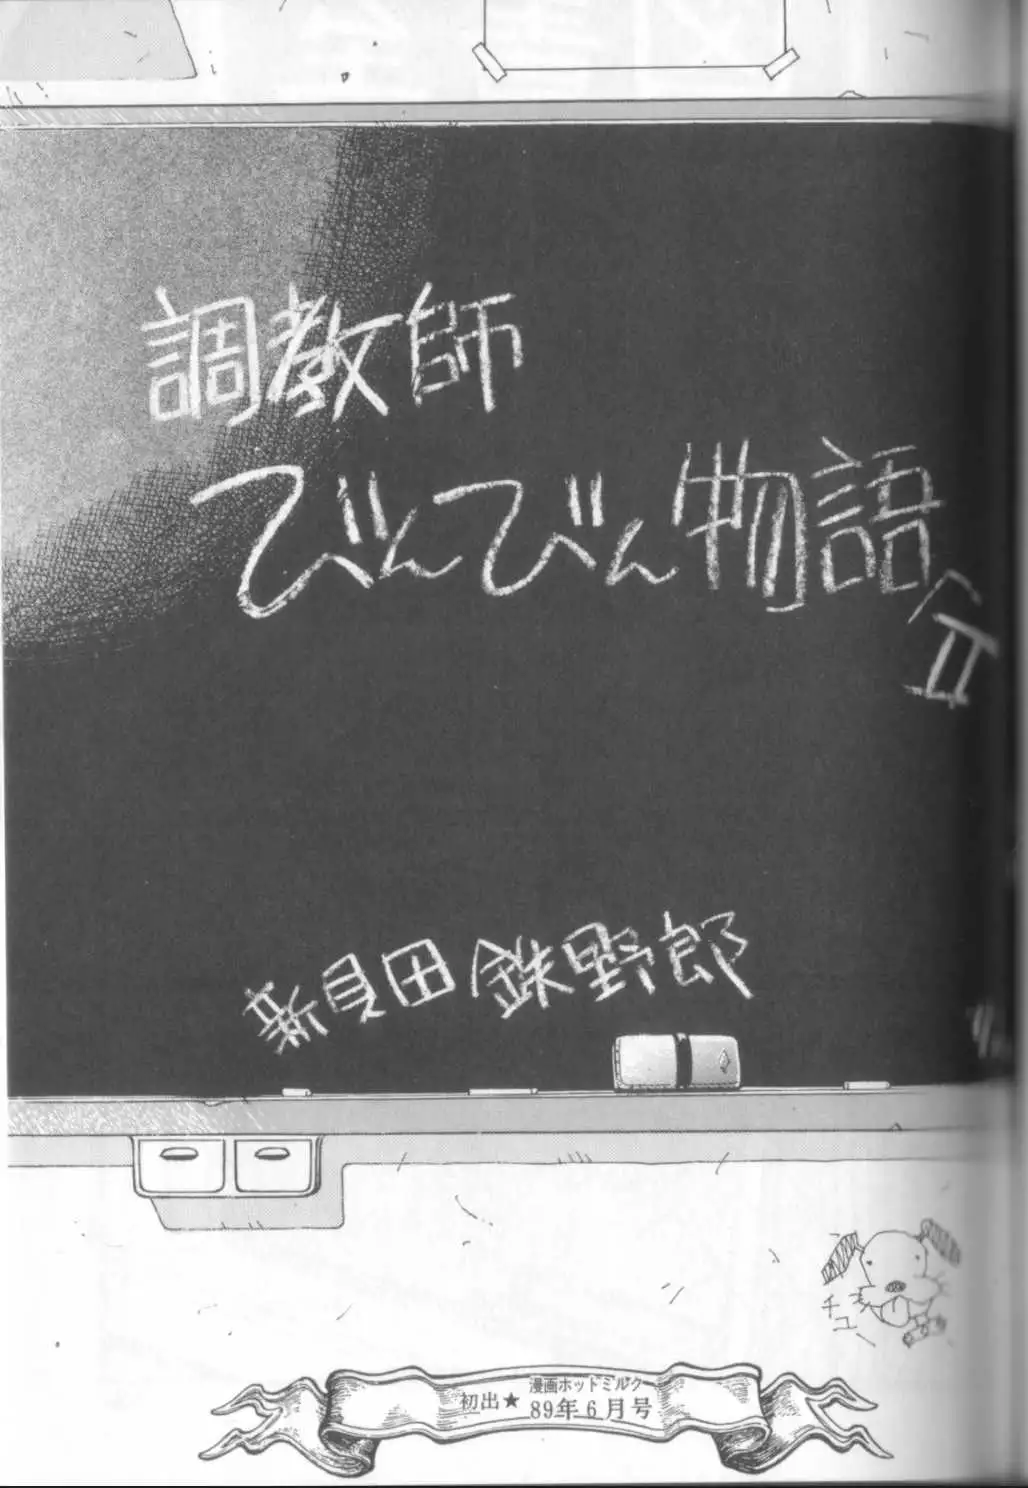 調教師
びんびん物語
II
新貝田鉄野郎
チュー
初出★ 漫画ホットミルク
89年6月号